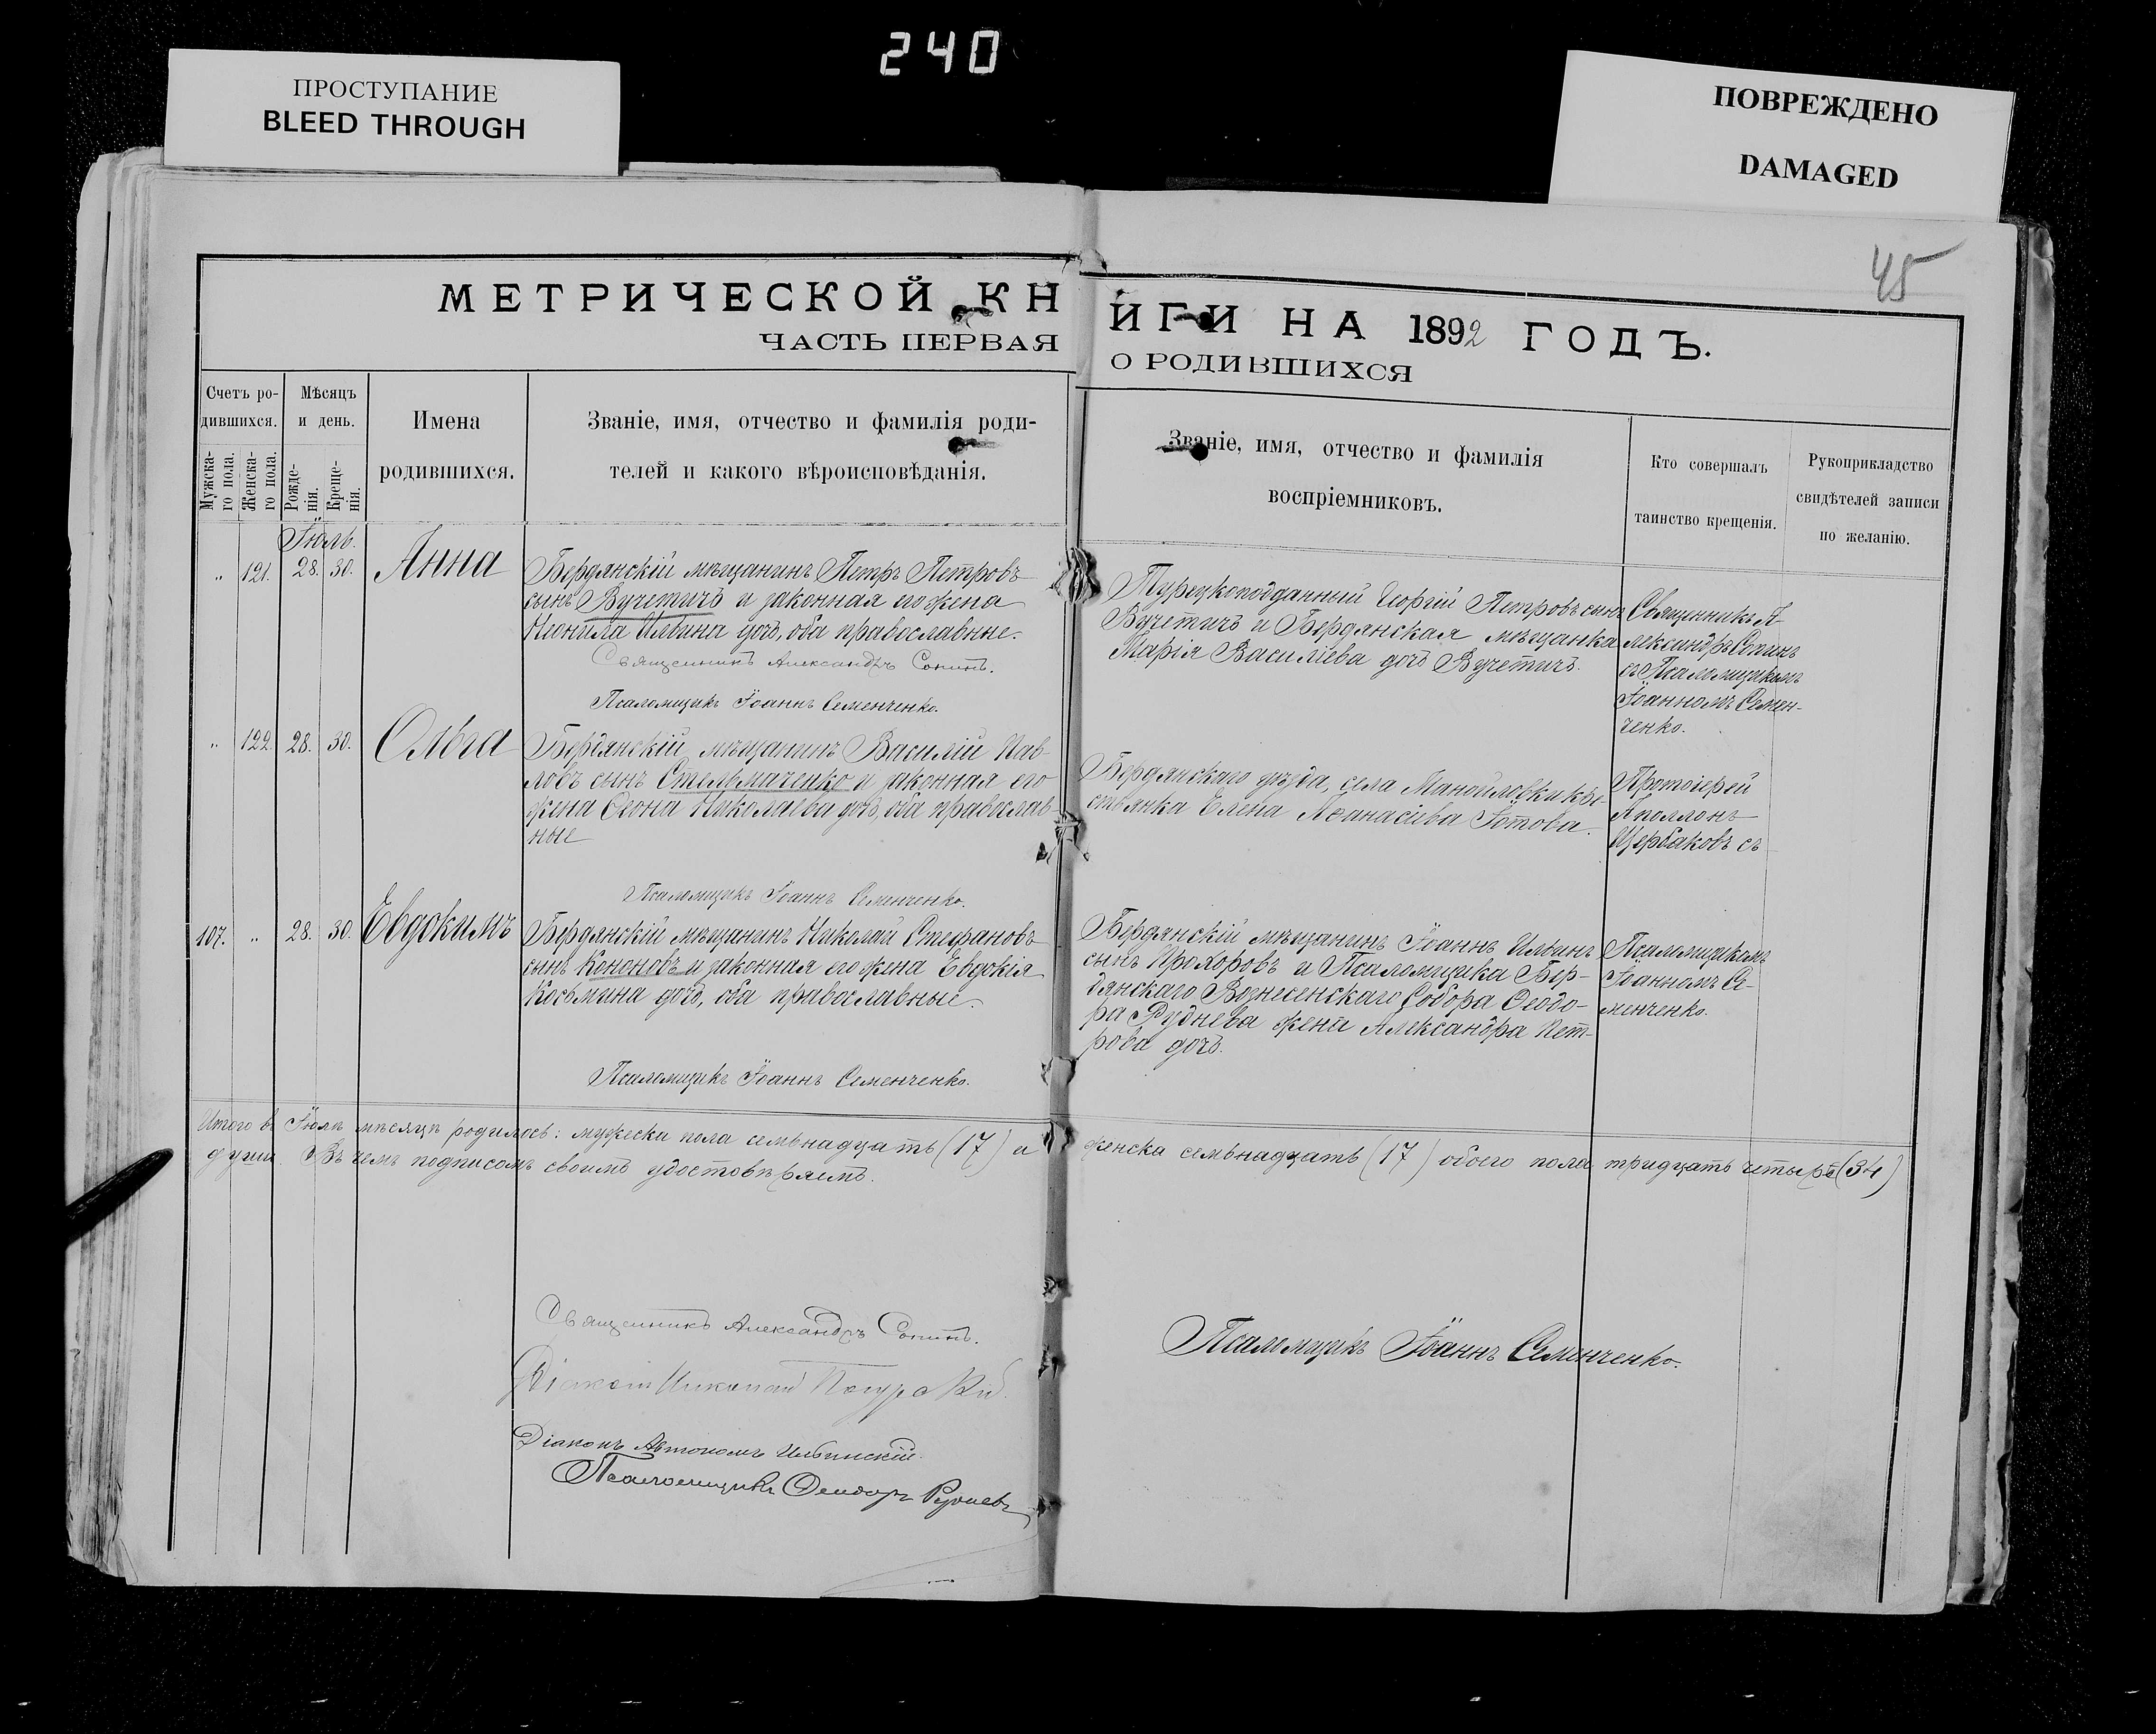 240
ПРОСТУПАНИЕ
BLEED THROUGH
ПОВРЕЖДЕНО
DAMAGED
45
МЕТРИЧЕСКОЙ КНИГИ НА 1892 ГОДЪ.
ЧАСТЬ ПЕРВАЯ О РОДИВШИХСЯ
Счетъ ро-
дившихся.
Мужска-
го пола.
Женска-
го пола.
Мѣсяцъ
и день.
Рожде-
нія.
Креще-
нія.
Имена
родившихся.
Званіе, имя, отчество и фамилія роди-
телей и какого вѣроисповѣданія.
Званіе, имя, отчество и фамилія
воспріемниковъ.
Кто совершалъ
таинство крещенія.
Рукоприкладство
свидѣтелей записи
по желанію.
Іюль.
„ 121. 28. 30. Анна
Бердянскій мѣщанинъ Петръ Петровъ
сынъ Вучетичъ и законная его жена
Неонила Ильина дочь, оба православные.
Священникъ Александръ Сопинъ.
Псаломщикъ Іоаннъ Семенченко.
Турецкоподданный Георгій Петровъ сынъ
Вучетичъ и Бердянская мѣщанка
Марія Василіева дочь Вучетичъ.
Священникъ А-
лександръ Сопинъ
съ Псаломщикомъ
Іоанномъ Семен-
ченко.
„ 122. 28. 30. Ольга
Бердянскій мѣщанинъ Василій Пав-
ловъ сынъ Стельмаченко и законная его
жена Ѳеона Николаева дочь, оба православ-
ные
Псаломщикъ Іоаннъ Семенченко.
Бердянскаго уѣзда, села Мануйловки кре-
стьянка Елена Аѳанасіева Зотова.
Протоіерей
Аполлонъ
Щербаковъ съ
107. „ 28. 30. Евдокимъ
Бердянскій мѣщанинъ Николай Стефановъ
сынъ Кононовъ и законная его жена Евдокія
Косьмина дочь, оба православные.
Псаломщикъ Іоаннъ Семенченко.
Бердянскій мѣщанинъ Іоаннъ Ильинъ
сынъ Прохоровъ и Псаломщика Бер-
дянскаго Вознесенскаго Собора Ѳеодо-
ра Руднева жена Александра Пет-
рова дочь.
Псаломщикомъ
Іоанномъ Се-
менченко.
Итого въ Іюлѣ мѣсяцѣ родилось: мужеска пола семьнадцать (17) а женска семьнадцать (17) обоего пола тридцать четыре (34)
души. Въ чемъ подписомъ своимъ удостовѣряемъ.
Священникъ Александръ Сопинъ.
Діаконъ Николай
Діаконъ Автономъ Ильинскій.
Псаломщикъ Ѳеодоръ Рудневъ
Псаломщикъ Іоаннъ Семенченко.